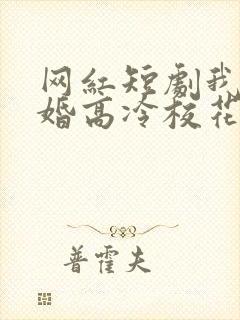 网红短剧我
婚高冷校花
普霍夫